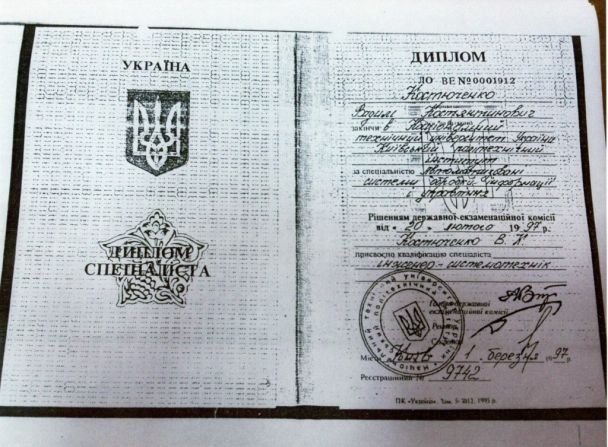 УКРАЇНА
ДИПЛОМ
СПЕЦІАЛІСТА
ДИПЛОМ
ЛО ВЕ №0001912
Костюченко
Вадим Костянтинович
закінчив Національний
технічний університет України
Київський політехнічний
інститут
за спеціальністю Автоматизовані
системи обробки інформації
і управління
Рішенням державної екзаменаційної комісії
від « 20 » лютого 1997р.
Костюченко В. К.
присвоєно кваліфікацію спеціаліста
інженер-системотехнік
Голова державної
екзаменаційної комісії
Ректор
Місто Київ 1 березня 1997р.
Реєстраційний № 9742
ПК «Україна». Зам. 5-3012. 1995 р.